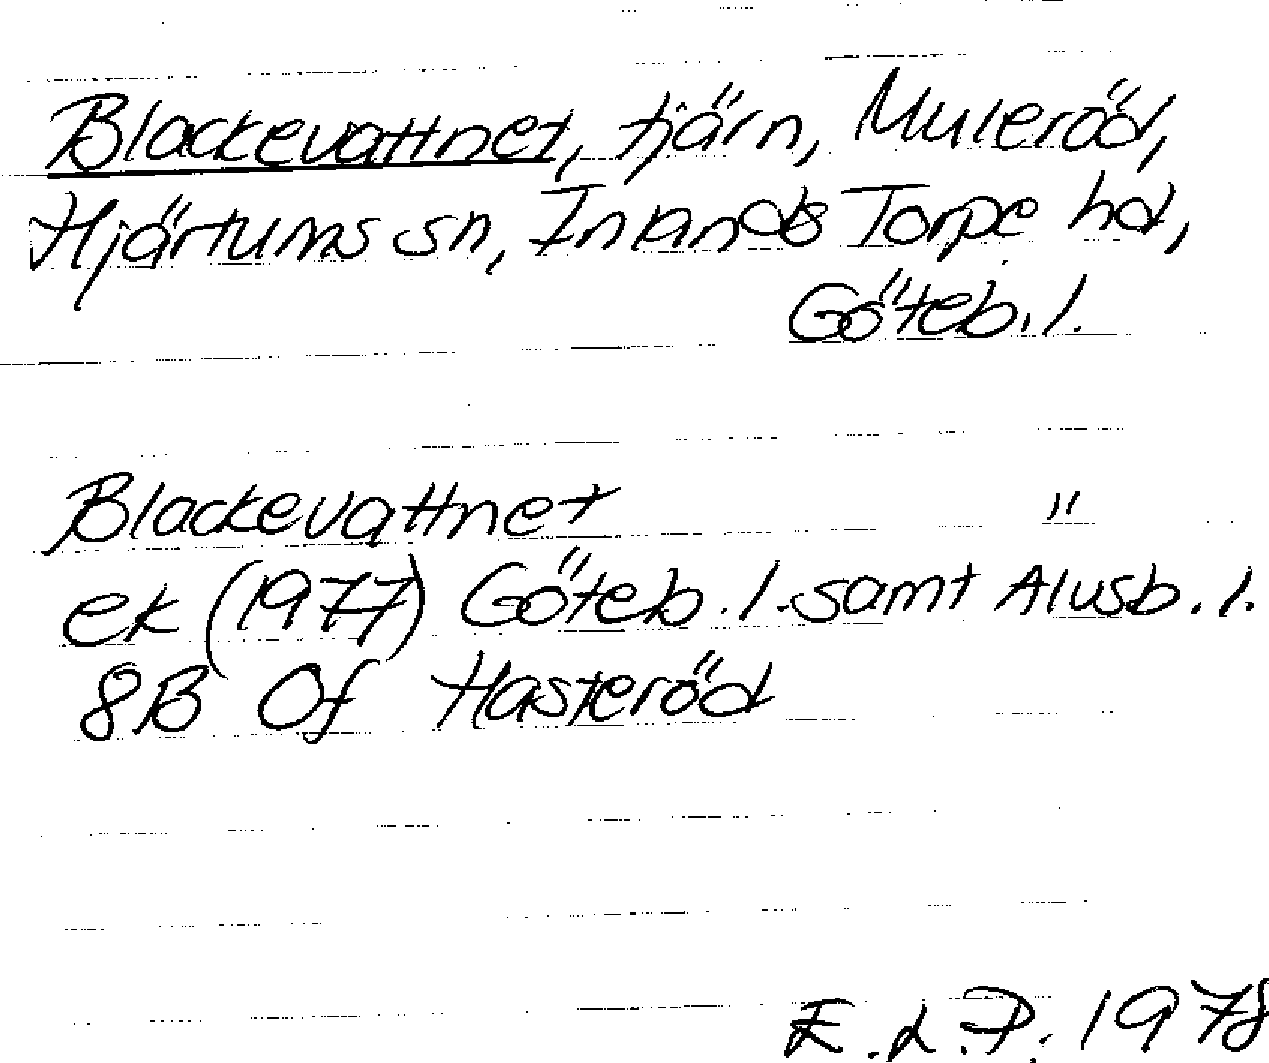 Blackevattnet, tjärn, Muleröd,
Hjärtums sn, Inlands Torpe hd,
Göteb. l.
Blackevattnet "
ek (1977) Göteb. l. samt Älvsb. l.
8B 0f Hasteröd
E.L.P. 1978